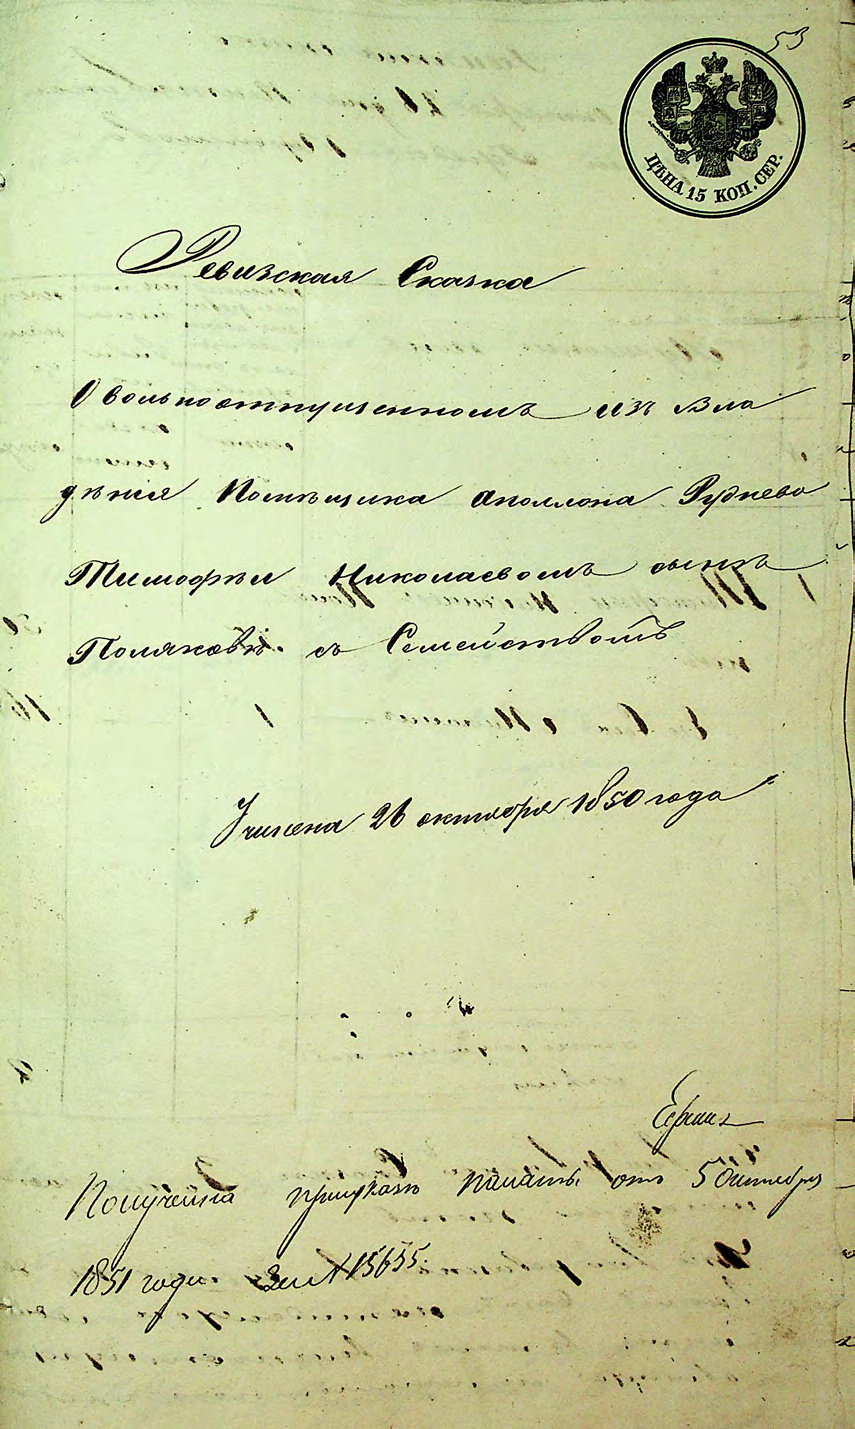 53
ЦѢНА 15 КОП. СЕР.
Ревизская Сказка
О вольноотпущенномъ изъ вла
дѣнія Помѣщика Аполлона Руднева
Тимофѣи Николаевомъ сынѣ
Поляковѣ. съ Семействомъ
Учинена 26 октября 1850 года
Получена при указѣ палаты отъ 5 Октября
1851 года за № 15655